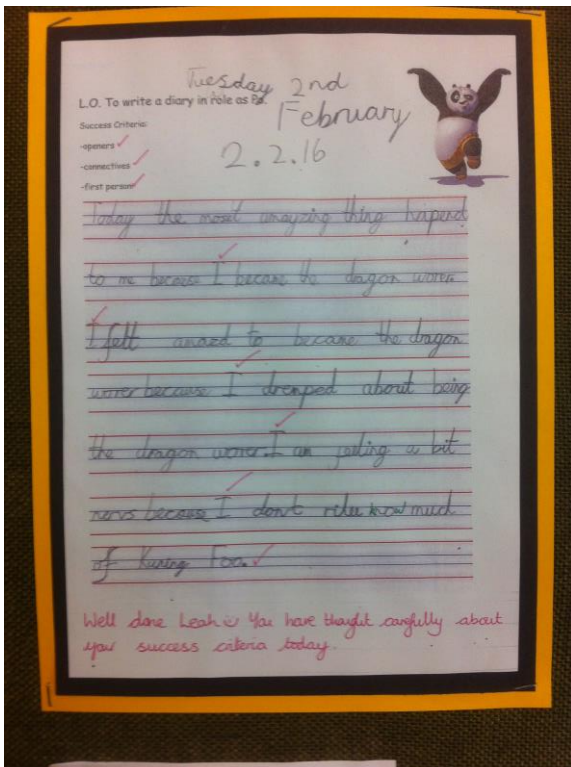 Tuesday 2nd
L.O. To write a diary in role as Po.
February
Success Criteria:
-openers
2.2.16
-connectives
-first person
Today the most amayzing thing hapend
to me becaose I became the dragon worer.
I felt amazd to became the dragon
worer because I dremped about being
the dragon worer. I am feiling a bit
nervs becaose I don't relee know much
of Kuning Foo.
Well done Leah :) You have thought carefully about
your success criteria today.